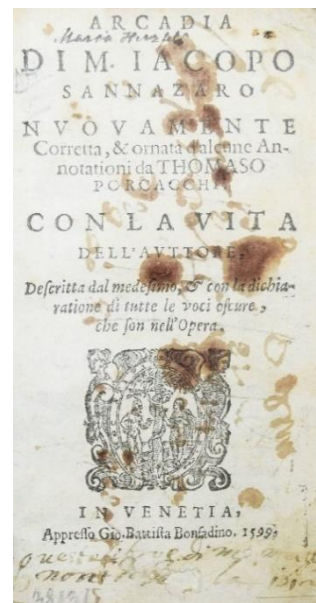 ARCADIA
DI M. IACOPO
SANNAZARO
NVOVAMENTE
Corretta, & ornata d'alcune An-
notationi da THOMASO
PORCACCHI,
CON LA VITA
DELL'AVTTORE,
Descritta dal medesimo, & con la dichia-
ratione di tutte le voci oscure,
che son nell'Opera.
IN VENETIA,
Appresso Gio. Battista Bonfadino. 1599.